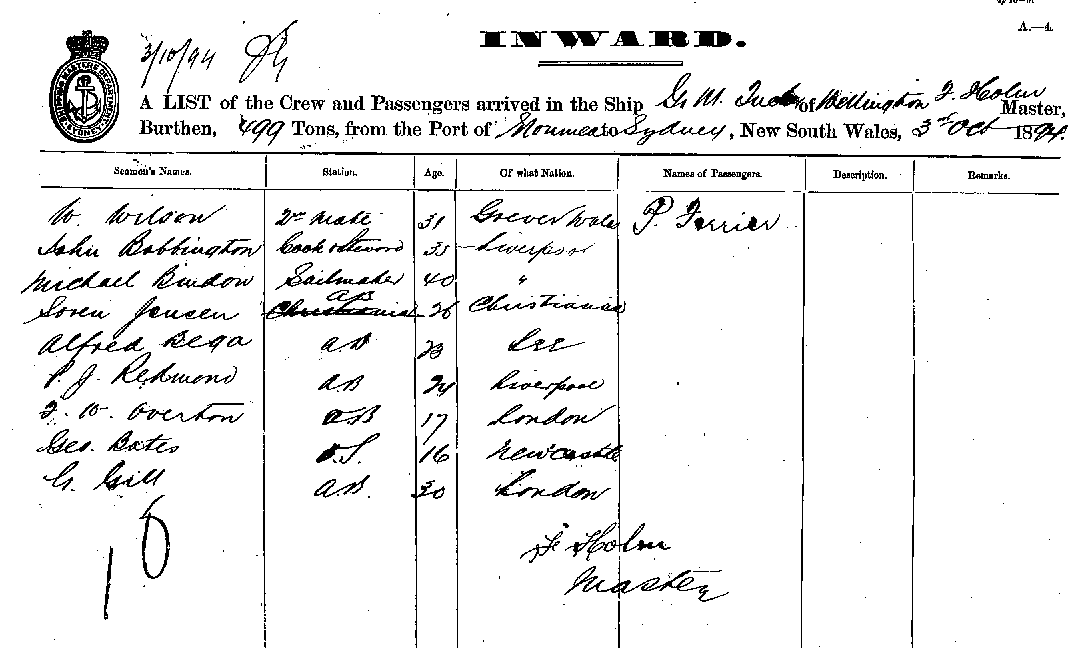 A.—4.
3/10/94
INWARD.
SHIPPING MASTERS DEPARTMENT SYDNEY
A LIST of the Crew and Passengers arrived in the Ship G. M. Tucker of Wellington F Holm Master,
Burthen, 499 Tons, from the Port of Noumea to Sydney, New South Wales, 3rd Oct 1894.
Seamen's Names. Station. Age. Of what Nation. Names of Passengers. Description. Remarks.
W. Wilson 2nd Mate 31 P. Ferrier
John Bobbington Cook & Steward 35 Liverpool
Michael Bindon Sailmaker 40 "
AB
Soren Jensen Christiania 26 Christiania
Alfred Bega AB 23
P. J. Redmond AB 24 Liverpool
F. W. Overton AB 17 London
Geo. Bates O.S. 16 Newcastle
G. Gill AB. 30 London
10
F Holm
Master